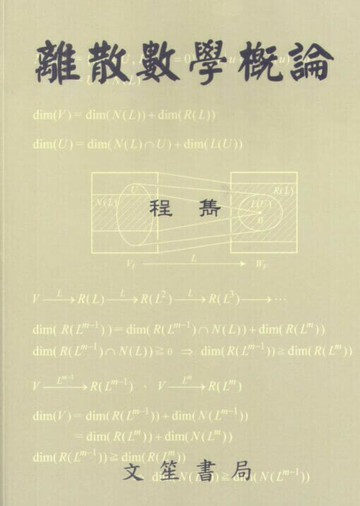 離散數學概論
dim(V) = dim(N(L)) + dim(R(L))
dim(U) = dim(N(L)∩U) + dim(L(U))
U
R(L)
N(L)
L(U)
程 雋
V_F L W_F
V —L→ R(L) —L→ R(L²) —L→ R(L³) ⟶ ⋯
dim( R(L^{m-1})) = dim( R(L^{m-1})∩N(L)) + dim( R(L^m))
dim( R(L^{m-1})∩N(L)) ≧ 0 ⇒ dim( R(L^{m-1})) ≧ dim( R(L^m))
V —L^{m-1}→ R(L^{m-1}) , V —L^m→ R(L^m)
dim(V) = dim( R(L^{m-1})) + dim( N(L^{m-1}))
= dim( R(L^m)) + dim( N(L^m))
dim( R(L^{m-1})) ≧ dim( R(L^m))
文笙書局